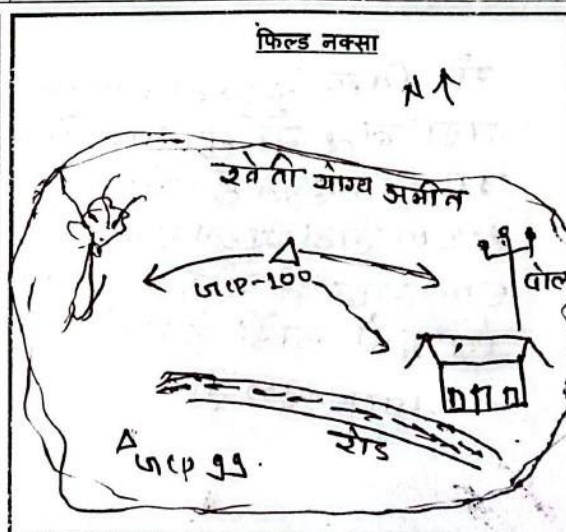 फिल्ड नक्सा
N
खेती योग्य जमीन
जीसीपी-100
पोल
रोड
99.